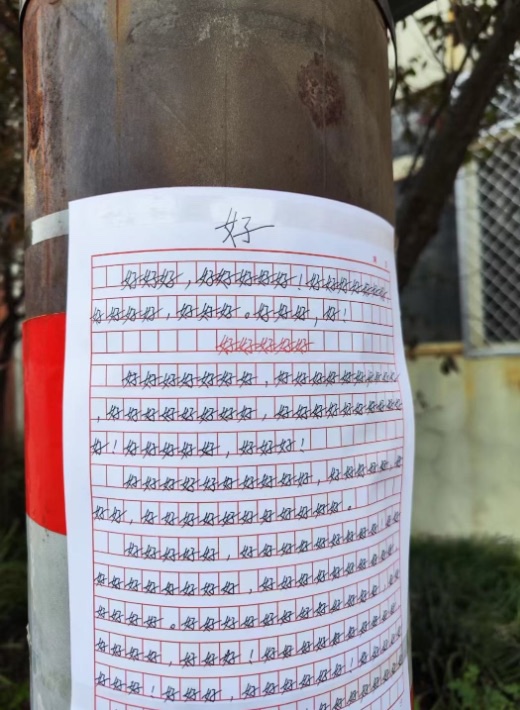 好
好好好好，好好好好好好！好好好好好好
好好好好，好好好好。好好好好，好！
好好好好好好
好好好好好好好好好，好好好好好好好好
，好好好好好好好好好好，好好好好好好好好
好！好好好好好好，好好好好！
好好好好好好好好好好好好，好好好好好
好好，好好好好好好好好好好好好好。
好好好好好好，好好好好好好好好好！好
好好好好好好好好好，好好好好好好好好好
好好好好。好好好好好好好好好好好好好，好
好好好好，好好好好！好好好好好好好好好
好好好好！好好好好，好好好好好好好！好好